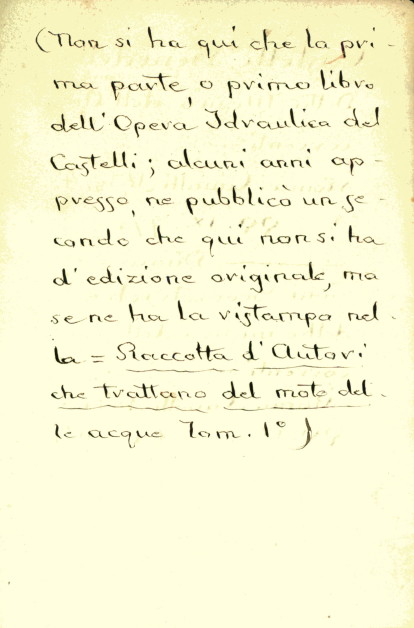 (Non si ha qui che la pri-
ma parte, o primo libro
dell'Opera Idraulica del
Castelli; alcuni anni ap-
presso, ne pubblicò un se-
condo che qui non si ha
d'edizione originale, ma
se ne ha la ristampa nel-
la = Raccotta d'Autori
che trattano del moto del-
le acque Tom. 1º)